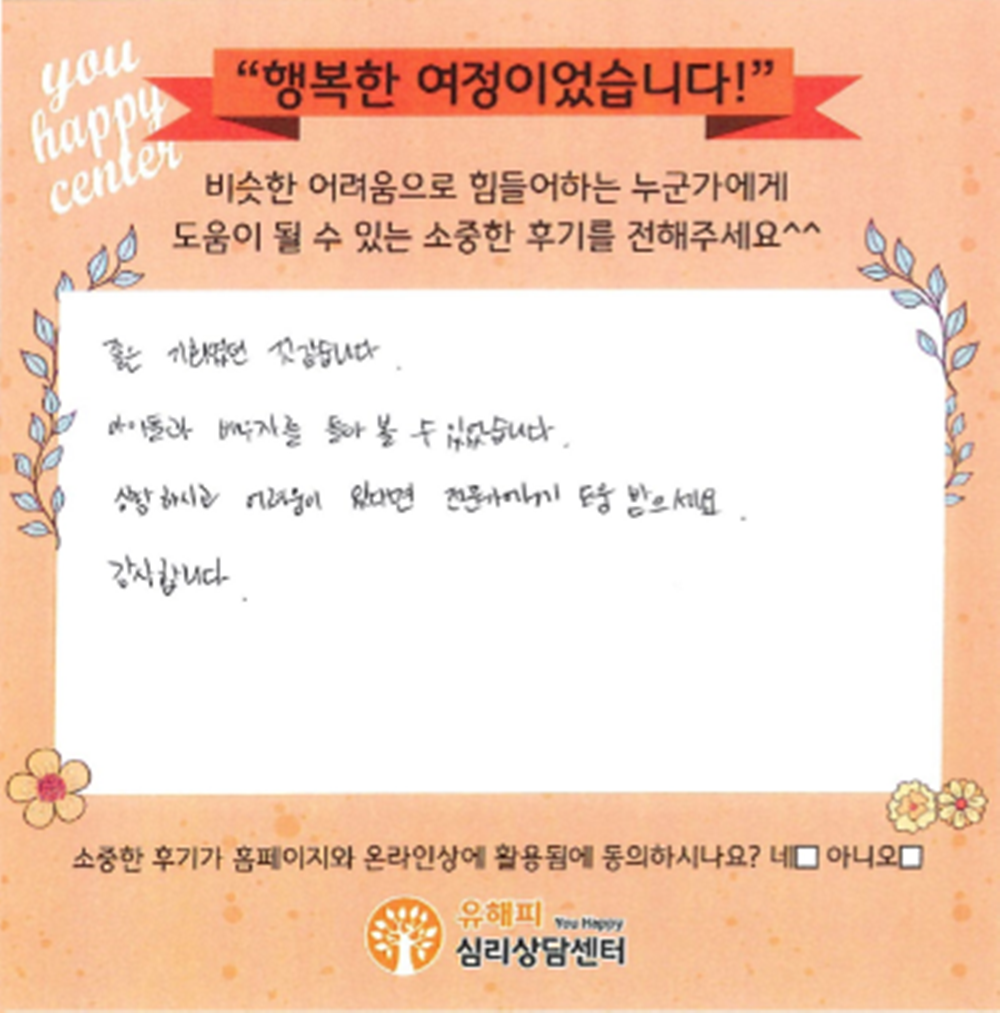 you
happy
center
“행복한 여정이었습니다!”
비슷한 어려움으로 힘들어하는 누군가에게
도움이 될 수 있는 소중한 후기를 전해주세요^^
좋은 기회였던 것 같습니다.
아이들과 배우자를 돌아 볼 수 있었습니다.
하시고 어려움이 있다면 전문가에게 도움 받으세요.
감사합니다.
소중한 후기가 홈페이지와 온라인상에 활용됨에 동의하시나요? 네□ 아니오□
유해피 You Happy
심리상담센터